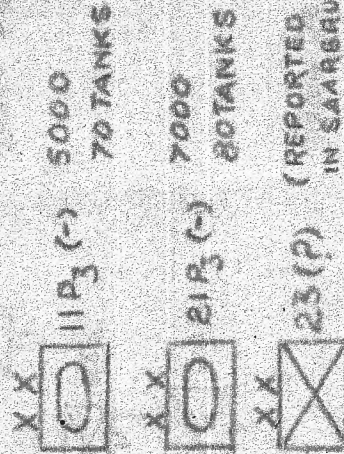 XX
11 Pz (-)
5000
70 TANKS
XX
21 Pz (-)
7000
20 TANKS
XX
23 (?)
(REPORTED
IN SAARBRU